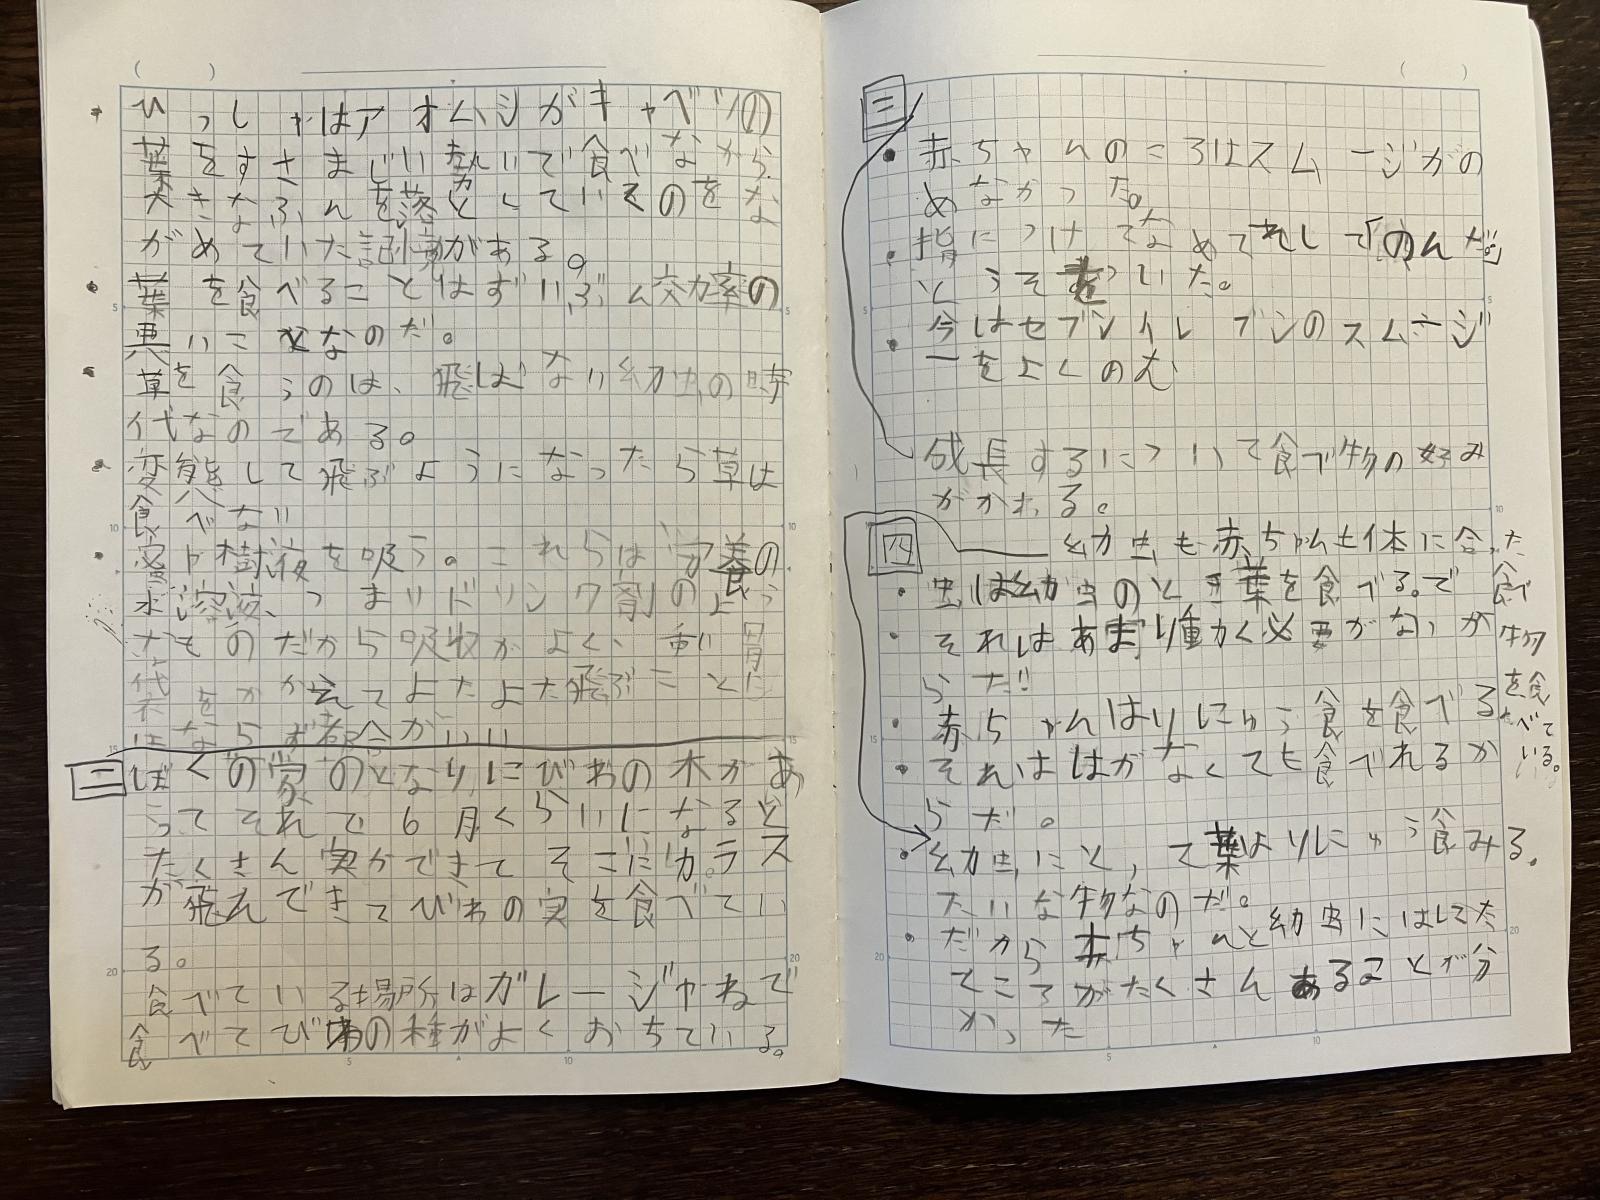 ひっしゃはアオムシがキャベツの
葉をすさまじい勢いで食べながら
大きなふんを落としていくのをな
がめていた記憶がある。
葉を食べることはずいぶん交力率の
悪いことなのだ。
草を食うのは、飛ばない幼虫の時
代なのである。
変態して飛ぶようになったら草は
食べない
蜜や樹液を吸う。これらは栄養の
水溶液、つまりドリンク剤のよう
なものだから吸収がよく、重い胃に
代をかかえてよたよた飛ぶことに
はならず都合がいい
二 ぼくの家のとなりにびわの木があ
ってそれで6月くらいになると
たくさん実ができてそこにカラス
が飛んできてびわの実を食べてい
る。
食べている場所はガレージやねで
食べてびわの種がよくおちている。
三
・赤ちゃんのころはスムージがの
めなかった。
・指につけてなめてれして「のんだ。」
とうそをついた。
・今はセブンイレブンのスムージ
ーをよくのむ
成長するにつれて食べ物の好み
がかわる。
四 幼虫も赤ちゃんも体に合った
食べ
物
を食
べて
いる。
・虫は幼虫のとき葉を食べる。で
・それはあまり動く必要がないか
らだ!!
・赤ちゃんはりにゅう食を食べる
・それははがなくても食べれるか
らだ。
・幼虫にとって葉はりにゅう食みる。
たいな物なのだ。
・だから赤ちゃんと幼虫にはにてた
ところがたくさんあることが分
かった